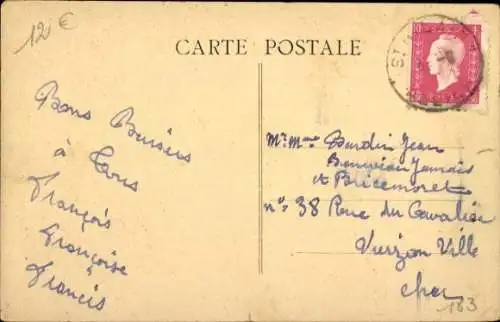 12 €
CARTE POSTALE
Bons Baisers
à Tous
François
Françoise
Francis
Mr Mme Dardin Jean
et Bricemoret
n° 38 Rue du Cavalier
Vierzon Ville
Cher
183